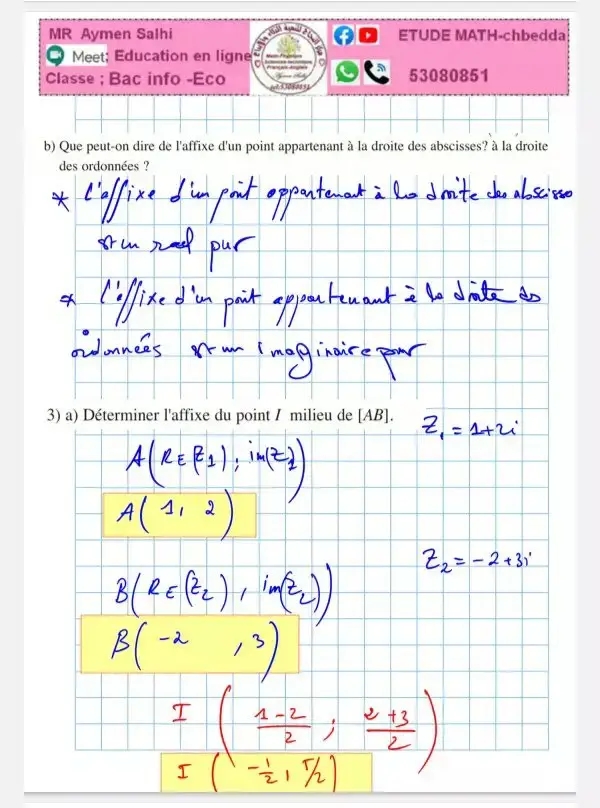 MR Aymen Salhi
Meet: Education en ligne
Classe : Bac info -Eco
ETUDE MATH-chbedda
53080851
b) Que peut-on dire de l'affixe d'un point appartenant à la droite des abscisses? à la droite
des ordonnées ?
* l'affixe d'un point appartenant à la droite des abscisse
est un reel pur
* l'affixe d'un point appartenant à la droite des
ordonnées est un imaginaire pur
3) a) Déterminer l'affixe du point I milieu de [AB].
Z₁ = 1+2i
A(RE(Z1) ; im(Z1))
A( 1, 2)
Z₂ = -2+3i
B(RE(Z₂) , im(Z₂))
B( -2 , 3)
I ( 1-2/2 ; 2+3/2 )
I ( -1/2 , 5/2 )